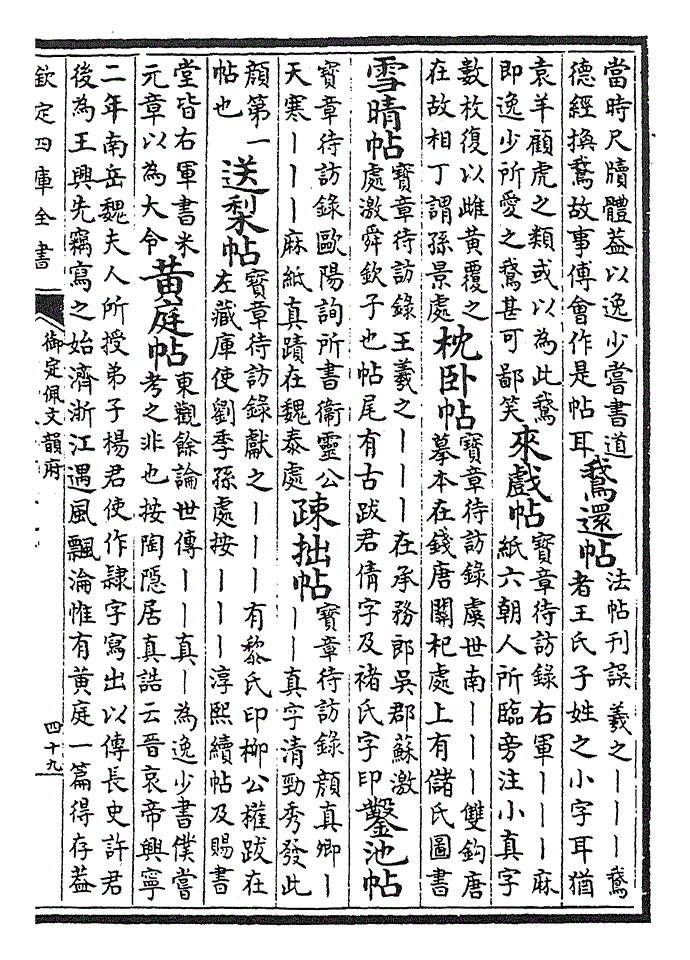 當時尺牘體葢以逸少嘗書道
德經換鵞故事傅會作是帖耳
鵞還帖
法帖刊誤羲之丨丨丨鵞
者王氏子姓之小字耳猶
袁羊顧虎之類或以為此鵞
即逸少所愛之鵞甚可鄙笑
來戲帖
寶章待訪錄右軍丨丨丨麻
紙六朝人所臨旁注小真字
數枚復以雌黃覆之
在故相丁謂孫景處
枕卧帖
寶章待訪錄虞世南丨丨丨雙鈎唐
摹本在錢唐關杞處上有儲氏圖書
雪晴帖
寶章待訪錄王羲之丨丨丨在承務郎吳郡蘇激
處激舜欽子也帖尾有古跋君倩字及褚氏字印
鑿池帖
寶章待訪錄歐陽詢所書衞靈公
天寒丨丨丨麻紙真蹟在魏泰處
疎拙帖
寶章待訪錄顏真卿丨
丨丨真字清勁秀發此
顏第一
帖也
送梨帖
寶章待訪錄獻之丨丨丨有黎氏印柳公權跋在
左藏庫使劉季孫處按丨丨丨淳熙續帖及賜書
堂皆右軍書米
元章以為大令
黃庭帖
東觀餘論世傳丨丨真丨為逸少書僕嘗
考之非也按陶隱居真誥云晉哀帝興寧
二年南岳魏夫人所授弟子楊君使作隸字寫出以傳長史許君
後為王興先竊寫之始濟浙江遇風飄淪惟有黃庭一篇得存葢
欽定四庫全書
御定佩文韻府
四十九